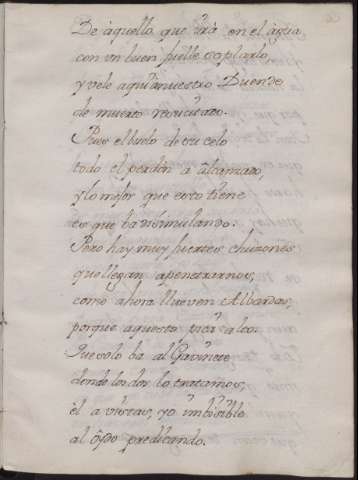 De àquello que irà en el àgua,
con un buen fuelle soplarlo,
y vele aqui à nuestro Duende,
de muerto resucitado.
Pues el buelo de su celo
todo el perdòn a alcansado,
y lo mejor que esto tiene
es que ba disimulando.
Pero hay muy fuertes chuzones
que llegan apenetrarnos,
como ahora llueven Albardas,
porque aquesto pica à los.
Que solo ba al Gavinete
donde los dos lo tratamos,
èl a vistas, yo imbisible
al oydo predicando.